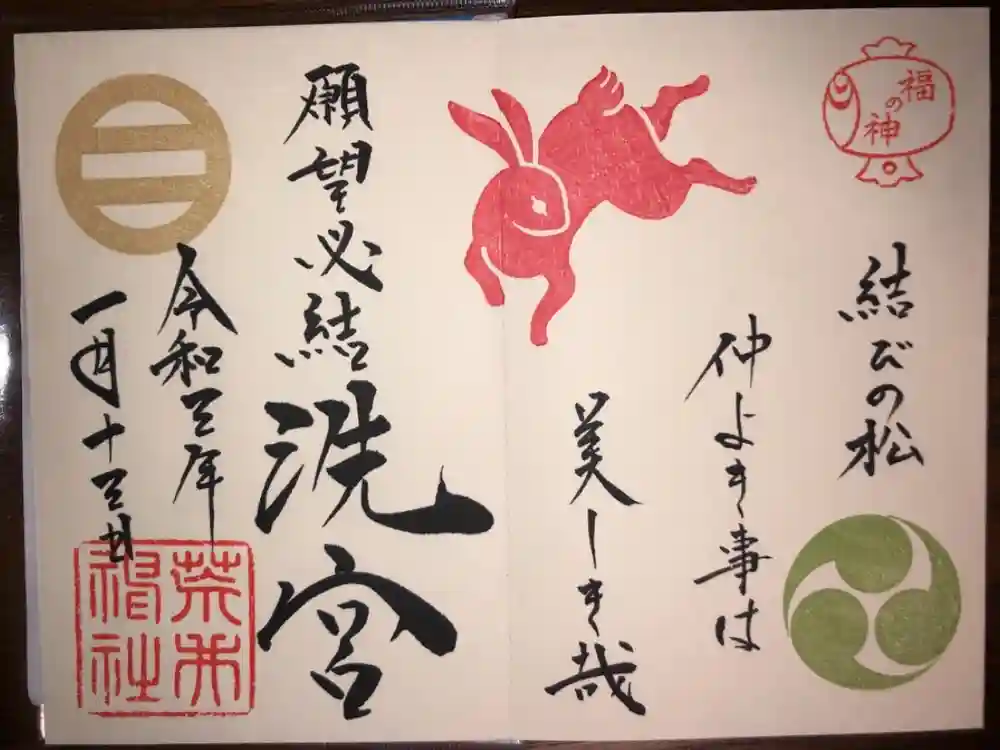 福の神
結びの松
仲よき事は
美しき哉
願望必結
洗宮
令和三年
一月十三日